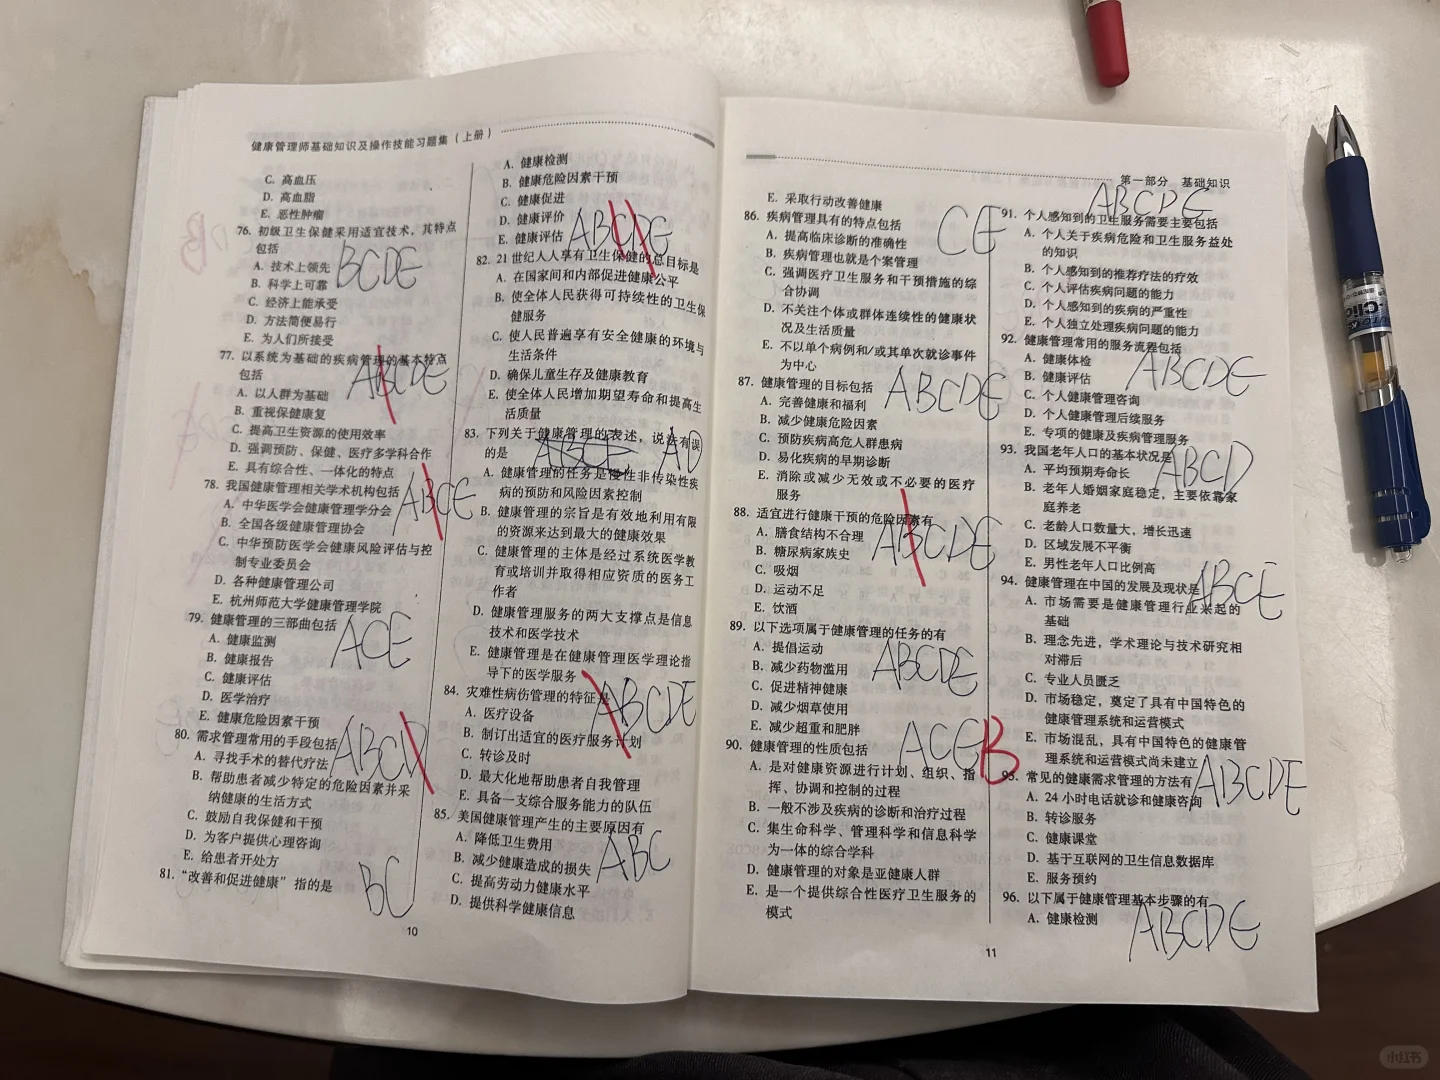 健康管理师基础知识及操作技能习题集(上册)
C. 高血压
D. 高血脂
E. 恶性肿瘤
76. 初级卫生保健采用适宜技术，其特点
包括
BCDE
A. 技术上领先
B. 科学上可靠
C. 经济上能承受
D. 方法简便易行
E. 为人们所接受
77. 以系统为基础的疾病管理的基本特点
包括
ABCDE
A. 以人群为基础
B. 重视保健康复
C. 提高卫生资源的使用效率
D. 强调预防、保健、医疗多学科合作
E. 具有综合性、一体化的特点
78. 我国健康管理相关学术机构包括
ABCE
A. 中华医学会健康管理学分会
B. 全国各级健康管理协会
C. 中华预防医学会健康风险评估与控
制专业委员会
D. 各种健康管理公司
E. 杭州师范大学健康管理学院
79. 健康管理的三部曲包括
ACE
A. 健康监测
B. 健康报告
C. 健康评估
D. 医学治疗
E. 健康危险因素干预
80. 需求管理常用的手段包括
ABCD
A. 寻找手术的替代疗法
B. 帮助患者减少特定的危险因素并采
纳健康的生活方式
C. 鼓励自我保健和干预
D. 为客户提供心理咨询
E. 给患者开处方
81. “改善和促进健康”指的是
BC
A. 健康检测
B. 健康危险因素干预
C. 健康促进
D. 健康评价
E. 健康评估
ABCDE
82. 21世纪人人享有卫生保健的总目标是
A. 在国家间和内部促进健康公平
B. 使全体人民获得可持续性的卫生保
健服务
C. 使人民普遍享有安全健康的环境与
生活条件
D. 确保儿童生存及健康教育
E. 使全体人民增加期望寿命和提高生
活质量
83. 下列关于健康管理的表述，说法有误
的是
AD
A. 健康管理的任务是慢性非传染性疾
病的预防和风险因素控制
B. 健康管理的宗旨是有效地利用有限
的资源来达到最大的健康效果
C. 健康管理的主体是经过系统医学教
育或培训并取得相应资质的医务工
作者
D. 健康管理服务的两大支撑点是信息
技术和医学技术
E. 健康管理是在健康管理医学理论指
导下的医学服务
84. 灾难性病伤管理的特征是
ABCDE
A. 医疗设备
B. 制订出适宜的医疗服务计划
C. 转诊及时
D. 最大化地帮助患者自我管理
E. 具备一支综合服务能力的队伍
85. 美国健康管理产生的主要原因有
A. 降低卫生费用
B. 减少健康造成的损失
ABC
C. 提高劳动力健康水平
D. 提供科学健康信息
10
第一部分 基础知识
E. 采取行动改善健康
86. 疾病管理具有的特点包括
CE
A. 提高临床诊断的准确性
B. 疾病管理也就是个案管理
C. 强调医疗卫生服务和干预措施的综
合协调
D. 不关注个体或群体连续性的健康状
况及生活质量
E. 不以单个病例和/或其单次就诊事件
为中心
87. 健康管理的目标包括
ABCDE
A. 完善健康和福利
B. 减少健康危险因素
C. 预防疾病高危人群患病
D. 易化疾病的早期诊断
E. 消除或减少无效或不必要的医疗
服务
88. 适宜进行健康干预的危险因素有
ABCDE
A. 膳食结构不合理
B. 糖尿病家族史
C. 吸烟
D. 运动不足
E. 饮酒
89. 以下选项属于健康管理的任务的有
A. 提倡运动
ABCDE
B. 减少药物滥用
C. 促进精神健康
D. 减少烟草使用
E. 减少超重和肥胖
90. 健康管理的性质包括
ACE
B
A. 是对健康资源进行计划、组织、指
挥、协调和控制的过程
B. 一般不涉及疾病的诊断和治疗过程
C. 集生命科学、管理科学和信息科学
为一体的综合学科
D. 健康管理的对象是亚健康人群
E. 是一个提供综合性医疗卫生服务的
模式
ABCDE
91. 个人感知到的卫生服务需要主要包括
A. 个人关于疾病危险和卫生服务益处
的知识
B. 个人感知到的推荐疗法的疗效
C. 个人评估疾病问题的能力
D. 个人感知到的疾病的严重性
E. 个人独立处理疾病问题的能力
92. 健康管理常用的服务流程包括
A. 健康体检
ABCDE
B. 健康评估
C. 个人健康管理咨询
D. 个人健康管理后续服务
E. 专项的健康及疾病管理服务
93. 我国老年人口的基本状况是
ABCD
A. 平均预期寿命长
B. 老年人婚姻家庭稳定，主要依靠家
庭养老
C. 老龄人口数量大，增长迅速
D. 区域发展不平衡
E. 男性老年人口比例高
94. 健康管理在中国的发展及现状是
ABCE
A. 市场需要是健康管理行业兴起的
基础
B. 理念先进，学术理论与技术研究相
对滞后
C. 专业人员匮乏
D. 市场稳定，奠定了具有中国特色的
健康管理系统和运营模式
E. 市场混乱，具有中国特色的健康管
理系统和运营模式尚未建立
95. 常见的健康需求管理的方法有
ABCDE
A. 24小时电话就诊和健康咨询
B. 转诊服务
C. 健康课堂
D. 基于互联网的卫生信息数据库
E. 服务预约
96. 以下属于健康管理基本步骤的有
A. 健康检测
ABCDE
11
小红书